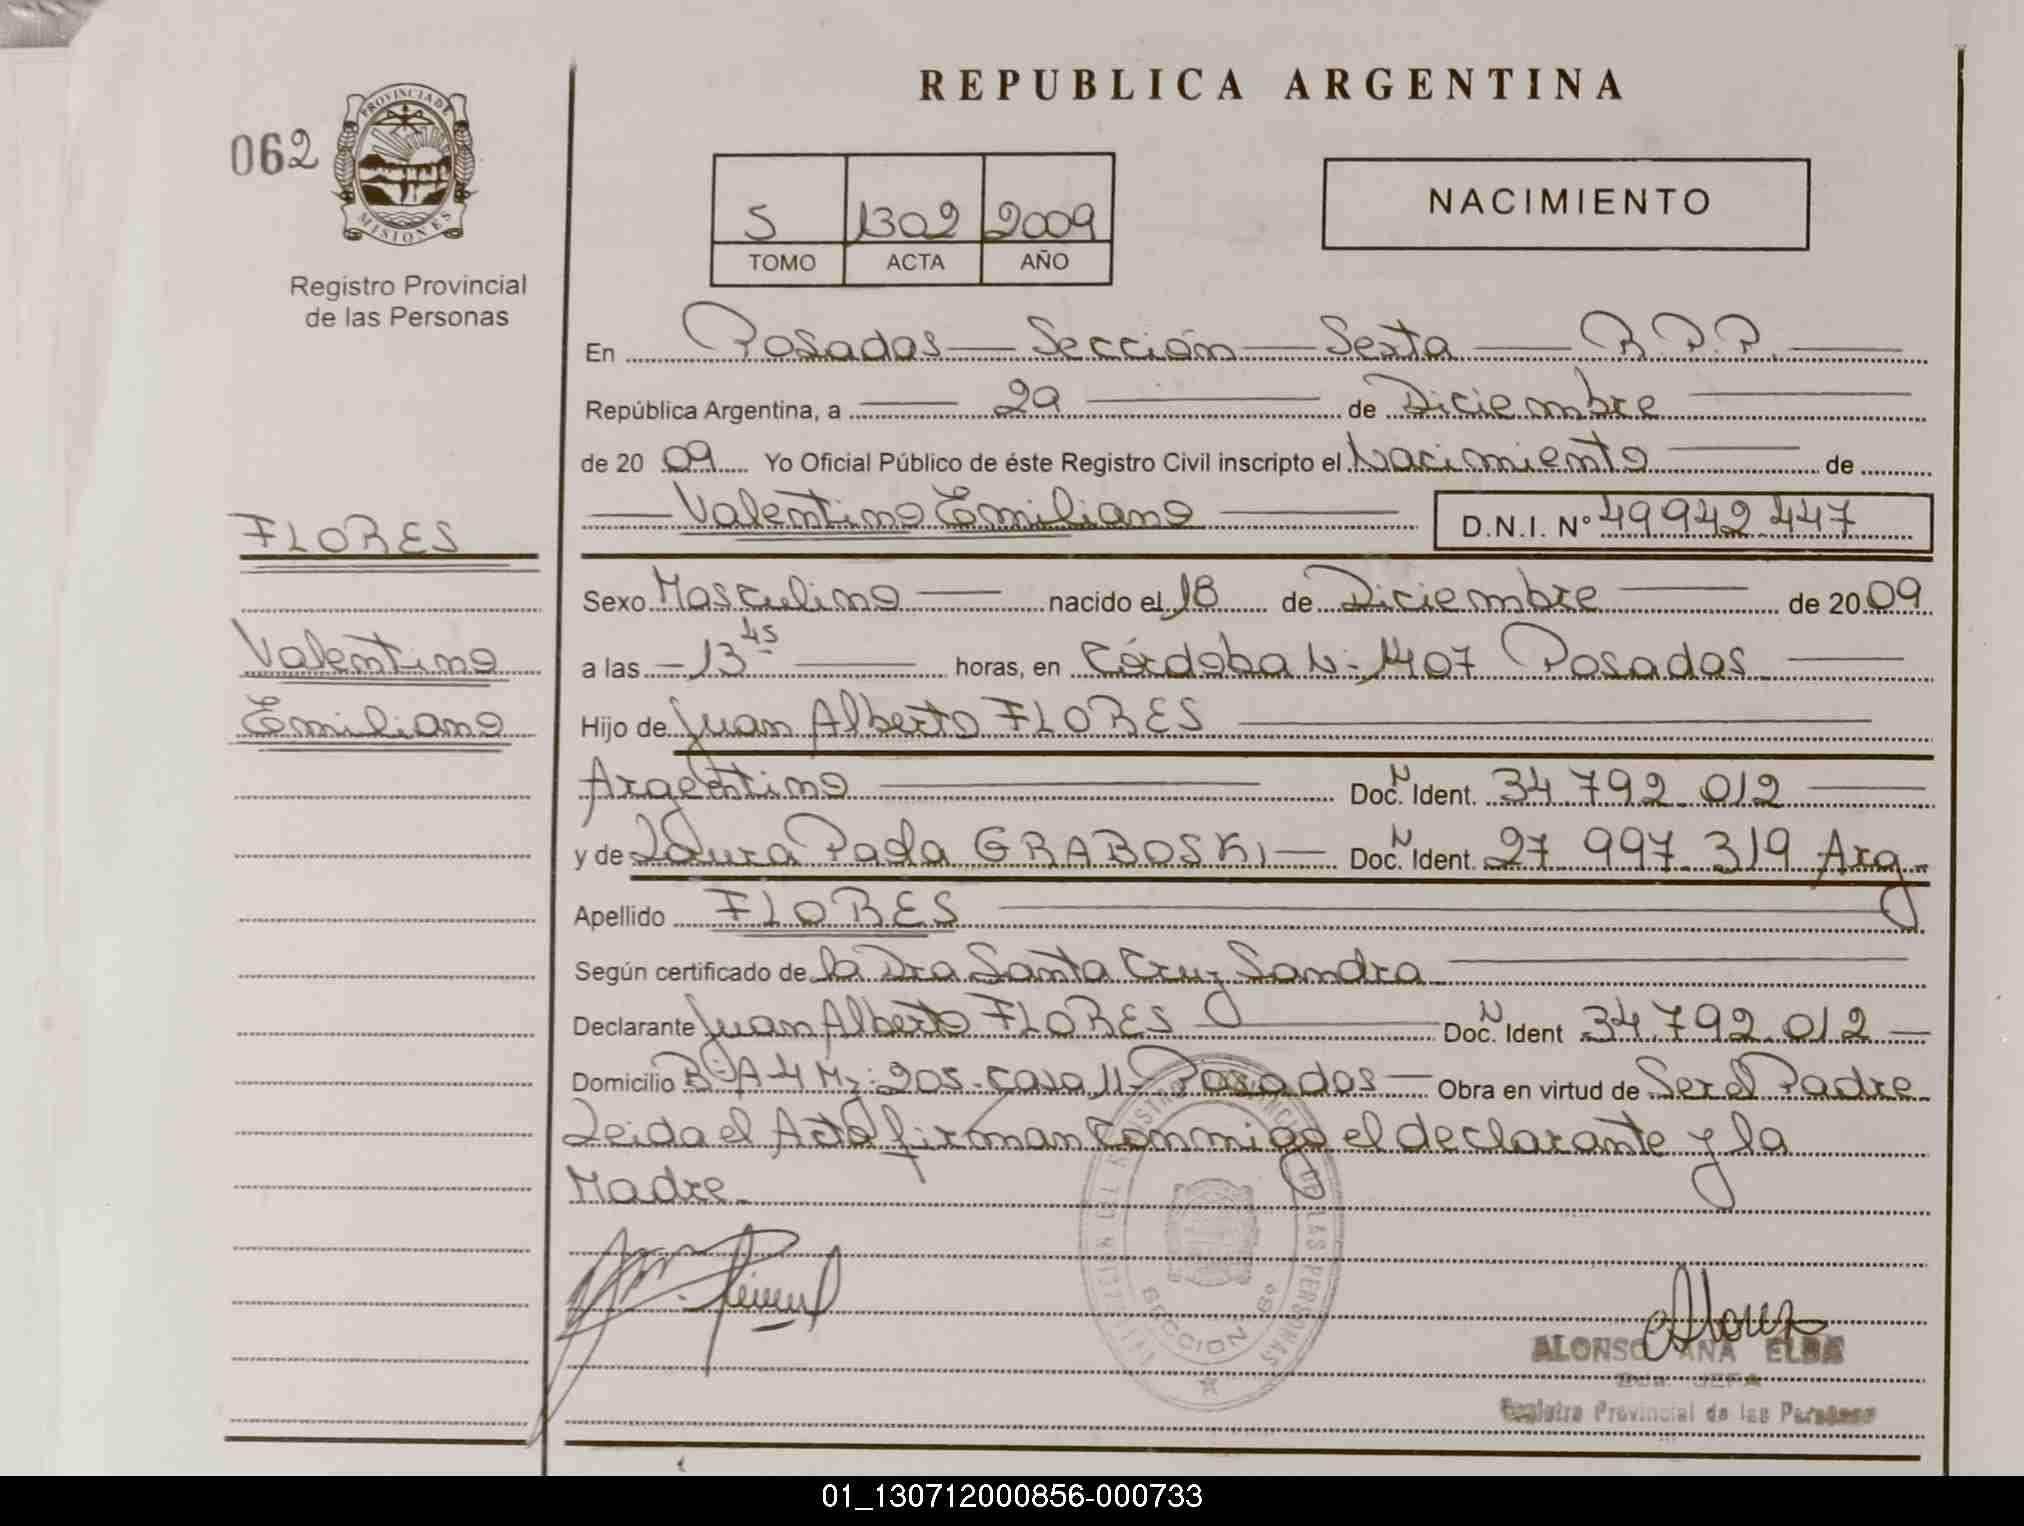 REPUBLICA ARGENTINA
062
PROVINCIA DE
MISIONES
Registro Provincial
de las Personas
5 1302 2009
TOMO ACTA AÑO
NACIMIENTO
En Posadas — Sección — Sexta — R.P.P. —
República Argentina, a — 29 — de Diciembre —
de 20 09 Yo Oficial Público de éste Registro Civil inscripto el Nacimiento — de
— Valentino Emiliano — D.N.I. Nº 49942447
FLORES
Valentino
Emiliano
Sexo Masculino — nacido el 18 de Diciembre — de 20 09
a las — 13 45 — horas, en Córdoba N: 1407 Posadas —
Hijo de Juan Alberto FLORES —
Argentino — Doc. N Ident. 34 792 012 —
y de Laura Paola GRABOSKI — Doc. N Ident. 27 997 319 Arg-
Apellido FLORES —
Según certificado de la Dra Santa Cruz Sandra —
Declarante Juan Alberto FLORES — Doc. N Ident 34.792.012 —
Domicilio Bº A-4 Mz: 205 - casa 11 - Posadas — Obra en virtud de Ser el Padre
Leida el Acta firman conmigo el declarante y la
Madre.
SECCION 6º
ALONSO ANA ELBA
JEFA
Registro Provincial de las Personas
01_130712000856-000733